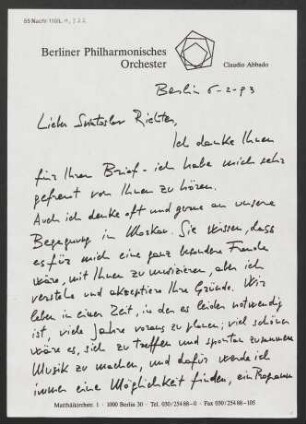 Berliner Philharmonisches
Orchester
Claudio Abbado
Berlin 5-2-93
Lieber Swjatoslav Richter,
Ich danke Ihnen
für Ihren Brief - ich habe mich sehr
gefreut von Ihnen zu hören.
Auch ich denke oft und gerne an unsere
Begegnung in Moskau. Sie wissen, dass
es für mich eine ganz besondere Freude
wäre, mit Ihnen zu musizieren, aber ich
verstehe und akzeptiere Ihre Gründe. Wir
leben in einer Zeit, in der es leider notwendig
ist, viele Jahre voraus zu planen; viel schöner
wäre es, sich zu treffen und spontan zusammen
Musik zu machen, und dafür werde ich
immer eine Möglichkeit finden, ein Programm
Matthäikirchstr. 1 · 1000 Berlin 30 · Tel. 030/254 88-0 · Fax 030/254 88-105